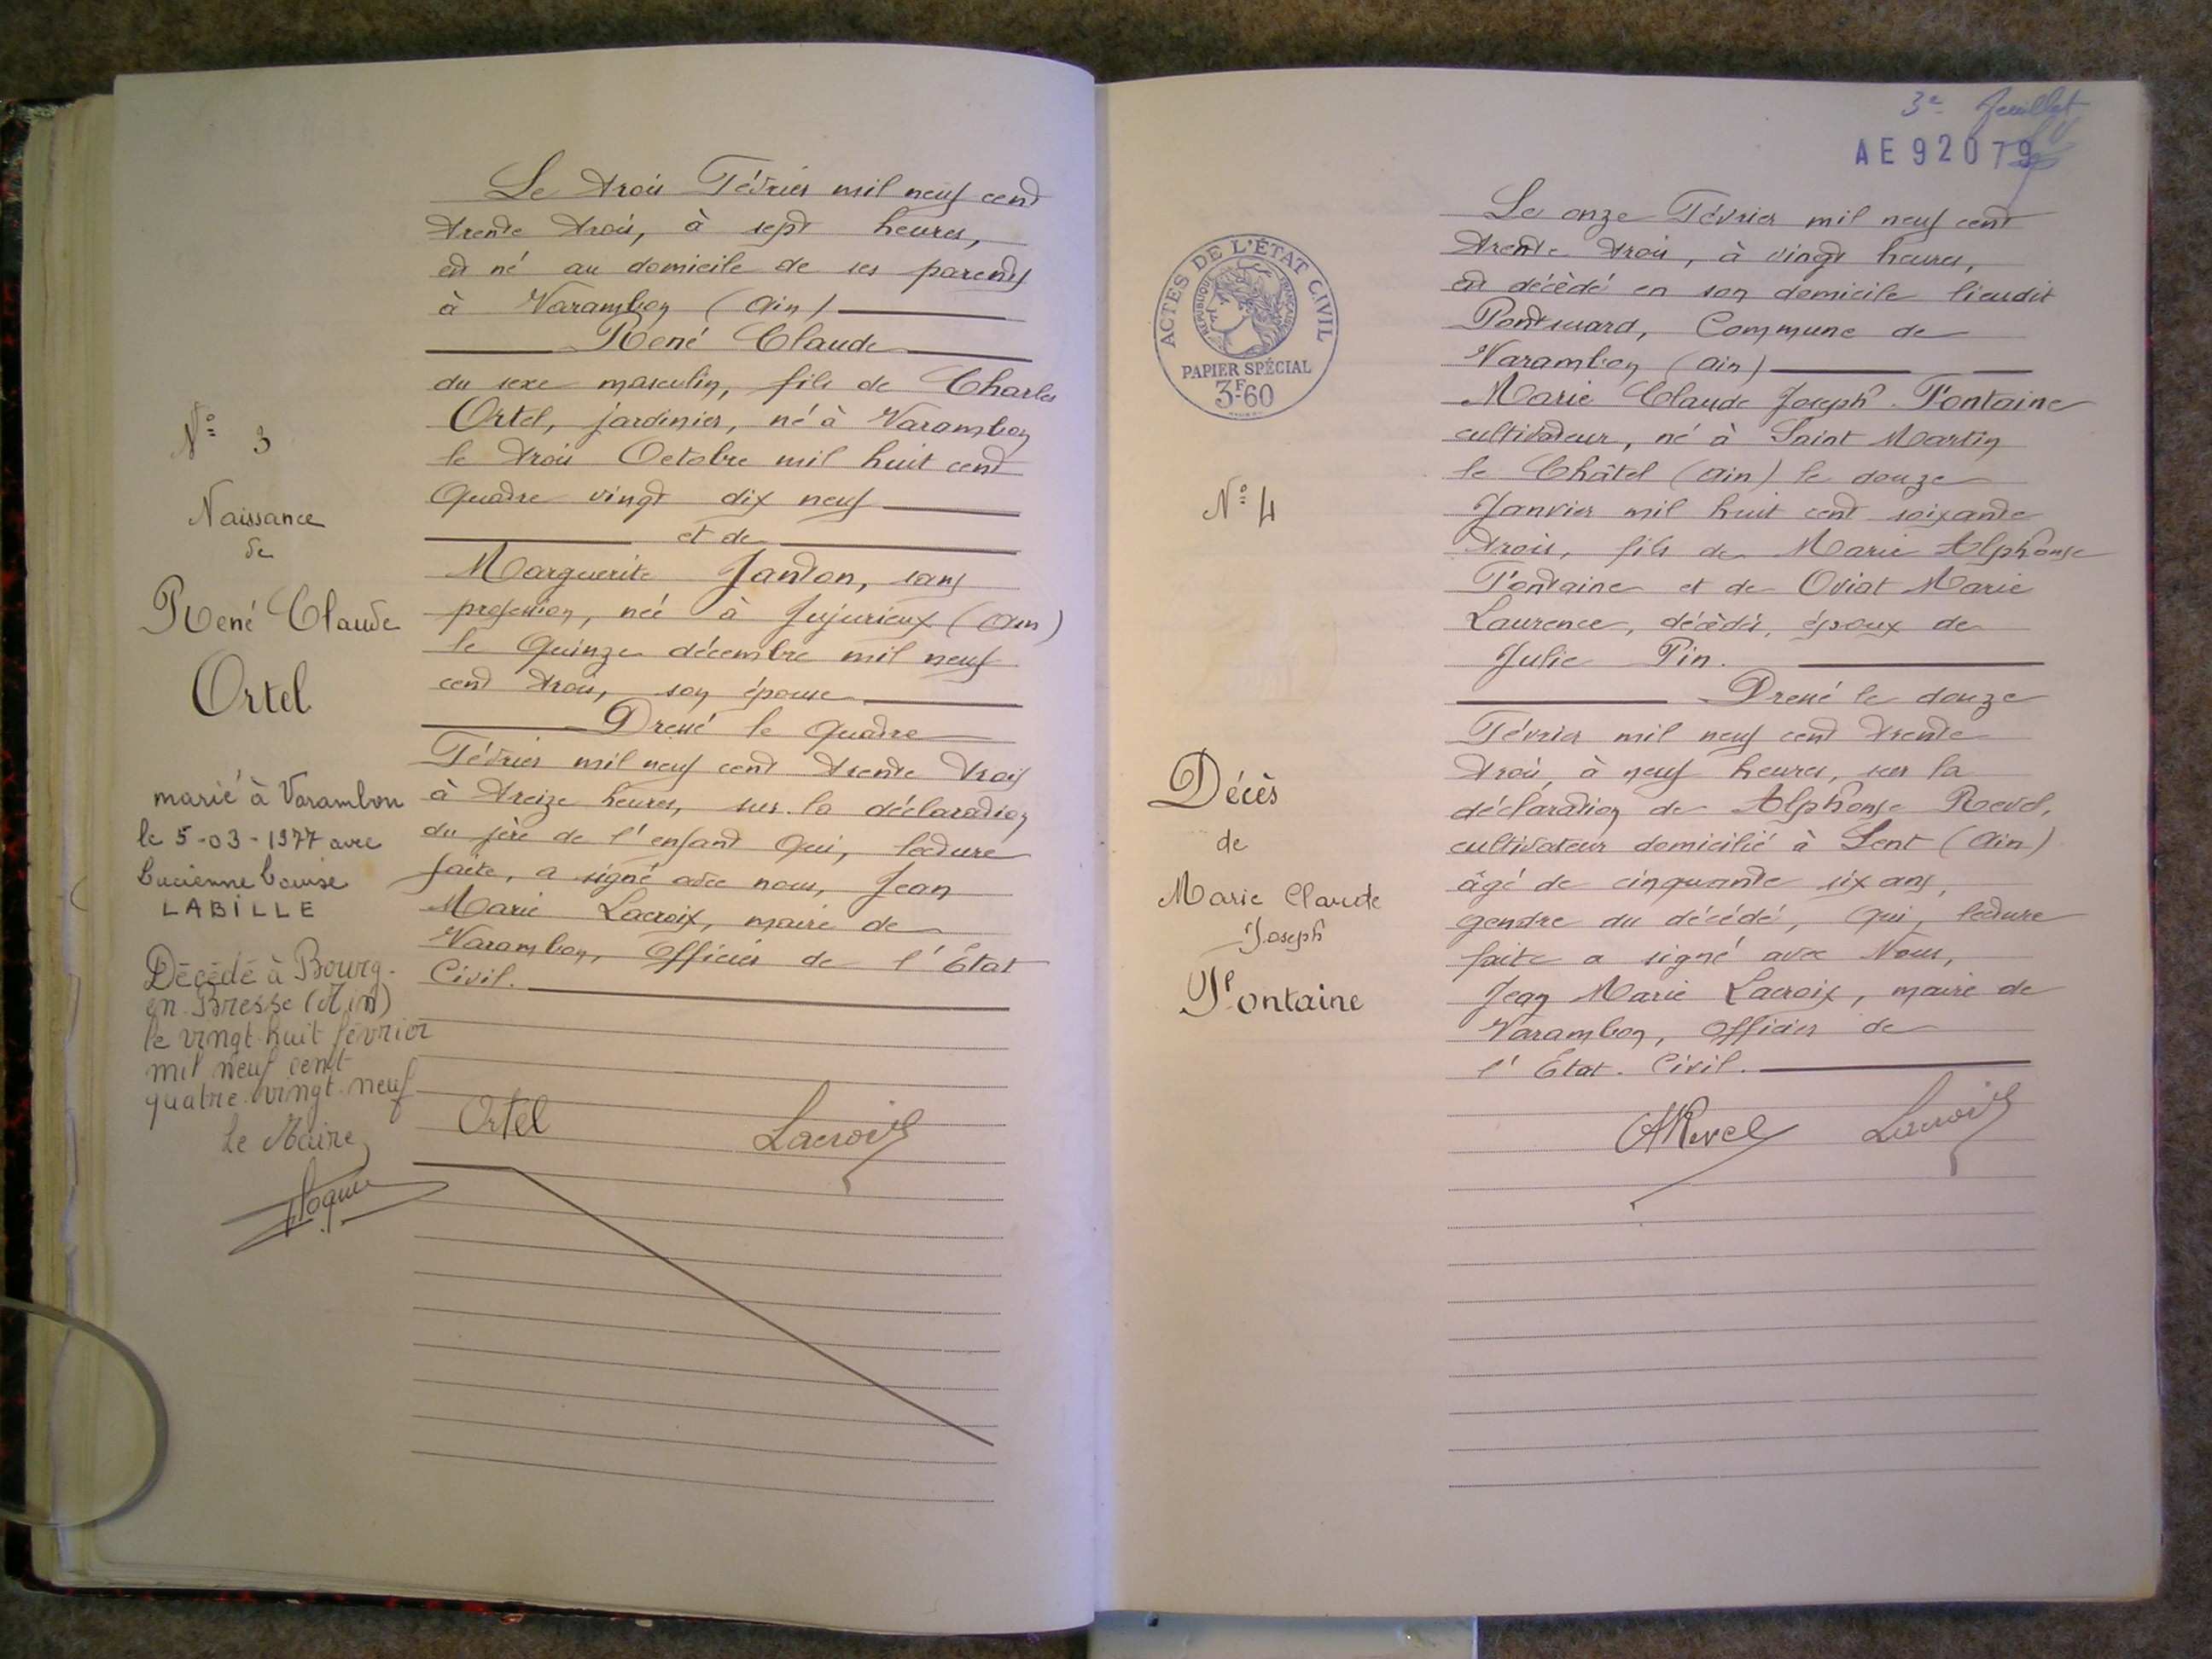 Le trois Février mil neuf cent
trente trois, à sept heures,
est né au domicile de ses parents
à Varambon (Ain)
René Claude
du sexe masculin, fils de Charles
Ortel, jardinier, né à Varambon
le trois Octobre mil huit cent
quatre vingt dix neuf
et de
Marguerite Janton, sans
profession, née à Jujurieux (Ain)
le quinze décembre mil neuf
cent trois, son épouse
Dressé le quatre
Février mil neuf cent trente trois
à treize heures, sur la déclaration
du père de l'enfant qui, lecture
faite, a signé avec nous, Jean
Marie Lacroix, maire de
Varambon, Officier de l'Etat
Civil.
Ortel Lacroix
N° 3
Naissance
de
René Claude
Ortel
marié à Varambon
le 5-03-1977 avec
Lucienne Louise
LABILLE
Décédé à Bourg-
en-Bresse (Ain)
le vingt-huit février
mil neuf cent
quatre-vingt-neuf
Le Maire
3e feuillet
AE92079
ACTES DE L'ÉTAT CIVIL
RÉPUBLIQUE FRANÇAISE
PAPIER SPÉCIAL
3F60
N° 4
Décès
de
Marie Claude
Joseph
Fontaine
Le onze Février mil neuf cent
trente trois, à vingt heures,
est décédé en son domicile lieudit
Pontsuard, Commune de
Varambon (Ain)
Marie Claude Joseph Fontaine
cultivateur, né à Saint Martin
le Châtel (Ain) le douze
Janvier mil huit cent soixante
trois, fils de Marie Alphonse
Fontaine et de Oviat Marie
Laurence, décédés, époux de
Julie Pin.
Dressé le douze
Février mil neuf cent trente
trois, à neuf heures, sur la
déclaration de Alphonse Revel,
cultivateur domicilié à Lent (Ain)
âgé de cinquante six ans,
gendre du décédé, qui, lecture
faite a signé avec Nous,
Jean Marie Lacroix, maire de
Varambon, Officier de
l'Etat Civil.
ARevel Lacroix